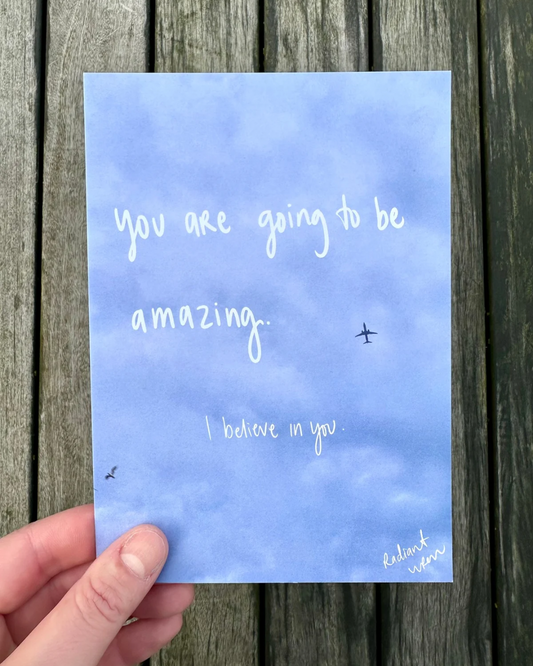 you are going to be
amazing.
I believe in you.
Radiant
wren